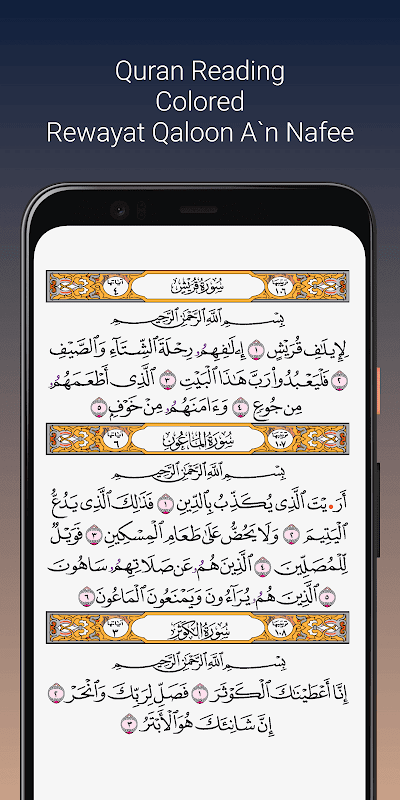 Quran Reading
Colored
Rewayat Qaloon A`n Nafee
ترتيبها ١٠٦ سُورَةُ قُرَيْشٍ آياتها ٤
بِسْمِ اِللَّهِ اِلرَّحْمَٰنِ اِلرَّحِيمِ
لِإِيلَٰفِ قُرَيْشٍ ١ إِۦلَٰفِهِمُۥ رِحْلَةَ اَلشِّتَآءِ وَالصَّيْفِ
٢ فَلْيَعْبُدُواْ رَبَّ هَٰذَا اَلْبَيْتِ ٣ اِلَّذِى أَطْعَمَهُمُۥ
مِن جُوعٍ ٤ وَءَامَنَهُمُۥ مِنْ خَوْفٍ ٥
ترتيبها ١٠٧ سُورَةُ الْمَاعُونَ آياتها ٦
بِسْمِ اِللَّهِ اِلرَّحْمَٰنِ اِلرَّحِيمِ
أَرَٰ•يْتَ اَلَّذِى يُكَذِّبُ بِالدِّينِ ١ فَذَٰلِكَ اَلَّذِى يَدُعُّ
اُلْيَتِيمَ ٢ وَلَا يَحُضُّ عَلَىٰ طَعَامِ اِلْمِسْكِينِ ٣ فَوَيْلٌ
لِّلْمُصَلِّينَ ٤ اَلَّذِينَ هُمُۥ عَن صَلَاتِهِمُۥ سَاهُونَ
٥ اَلَّذِينَ هُمُۥ يُرَآءُونَ وَيَمْنَعُونَ اَلْمَاعُونَ ٦
ترتيبها ١٠٨ سُورَةُ الْكَوْثَرَ آياتها ٣
بِسْمِ اِللَّهِ اِلرَّحْمَٰنِ اِلرَّحِيمِ
إِنَّا أَعْطَيْنَٰكَ اَلْكَوْثَرَ ١ فَصَلِّ لِرَبِّكَ وَانْحَرْ ٢
إِنَّ شَانِئَكَ هُوَ اَلْأَبْتَرُ ٣